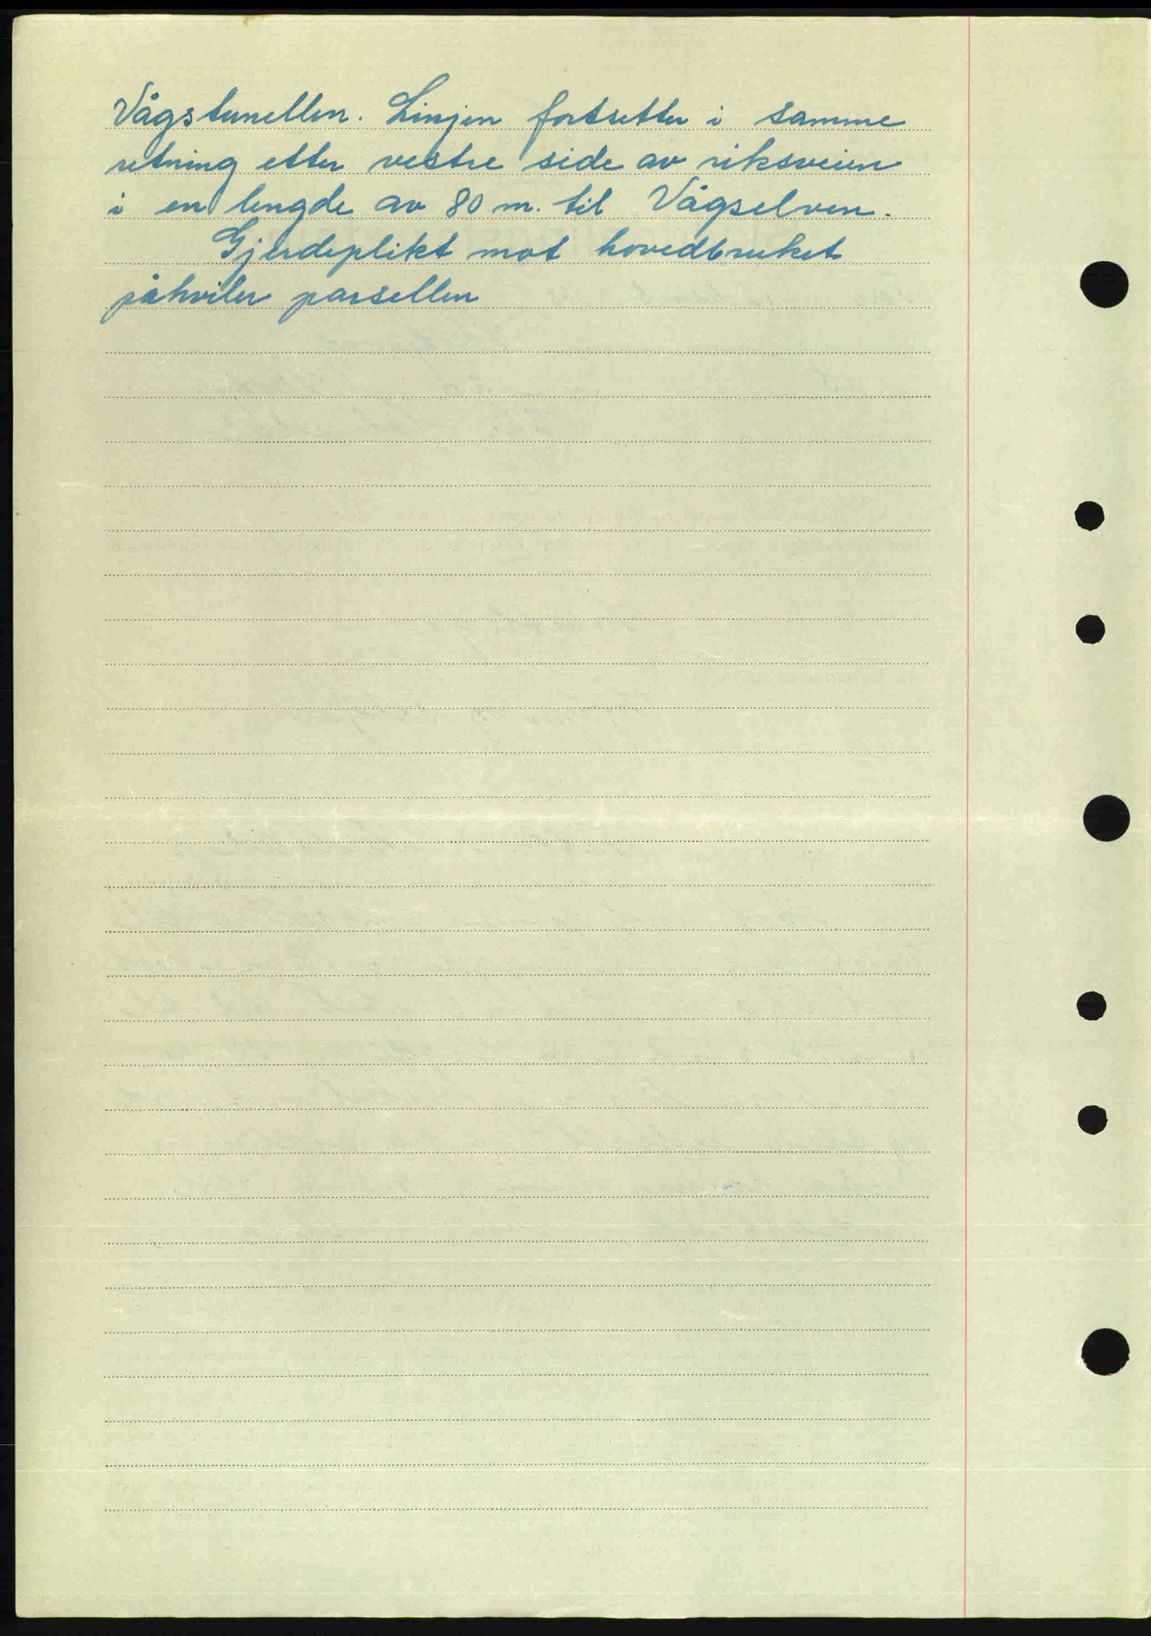 Vågstunellen. Linjen fortsetter i samme
retning etter vestre side av riksveien
i en lengde av 80 m. til Vågselven.
Gjerdeplikt mot hovedbruket
påhviler parsellen